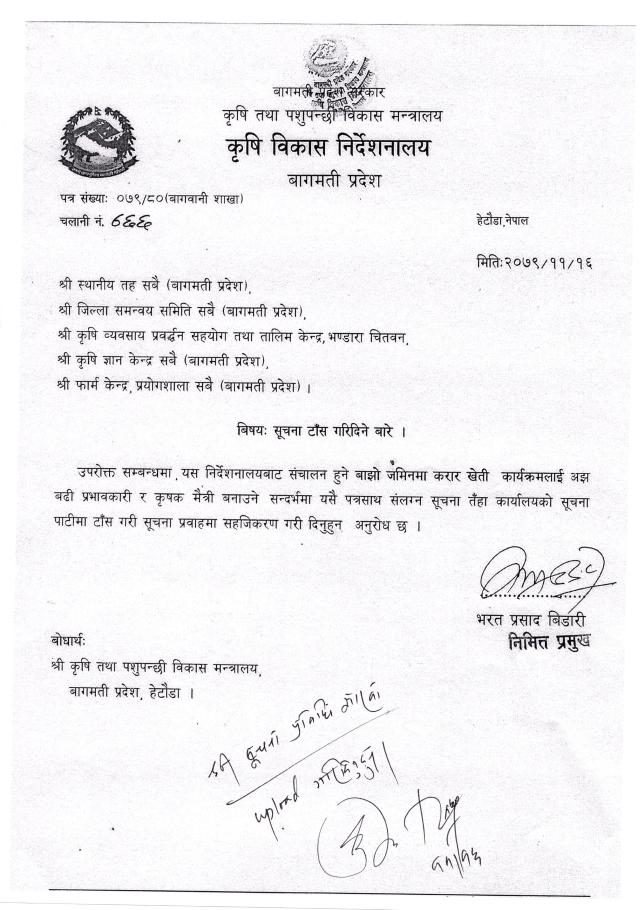 बागमती प्रदेश सरकार
कृषि तथा पशुपन्छी विकास मन्त्रालय
कृषि विकास निर्देशनालय
बागमती प्रदेश
पत्र संख्याः ०७९/८०(बागवानी शाखा)
चलानी नं. ८६६
हेटौडा,नेपाल
मितिः२०७९/११/१६
श्री स्थानीय तह सबै (बागमती प्रदेश),
श्री जिल्ला समन्वय समिति सबै (बागमती प्रदेश),
श्री कृषि व्यवसाय प्रवर्द्धन सहयोग तथा तालिम केन्द्र,भण्डारा चितवन,
श्री कृषि ज्ञान केन्द्र सबै (बागमती प्रदेश),
श्री फार्म केन्द्र, प्रयोगशाला सबै (बागमती प्रदेश) ।
बिषयः सूचना टाँस गरिदिने बारे ।
उपरोक्त सम्बन्धमा, यस निर्देशनालयबाट संचालन हुने बाझो जमिनमा करार खेती कार्यक्रमलाई अझ
बढी प्रभावकारी र कृषक मैत्री बनाउने सन्दर्भमा यसै पत्रसाथ संलग्न सूचना तँहा कार्यालयको सूचना
पाटीमा टाँस गरी सूचना प्रवाहमा सहजिकरण गरी दिनुहुन अनुरोध छ ।
भरत प्रसाद बिडारी
निमित्त प्रमुख
बोधार्थः
श्री कृषि तथा पशुपन्छी विकास मन्त्रालय,
बागमती प्रदेश, हेटौडा ।
सूचना प्रविधि
upload
११/१६